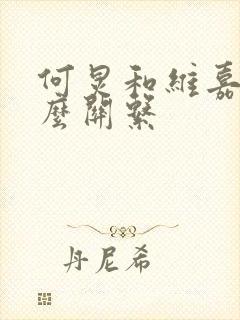 何炅和維嘉
麼關繫
丹尼希